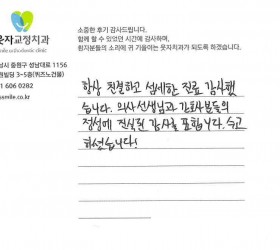 웃자교정치과
smile orthodontic clinic
남시 중원구 성남대로 1156
원빌딩 3~5층(퀴즈노건물)
1) 606 0282
ssmile.co.kr
소중한 후기 감사드립니다.
함께 할 수 있었던 시간에 감사하며,
환자분들의 소리에 귀 기울이는 웃자치과가 되도록 하겠습니다.
항상 친절하고 섬세한 진료 감사했
습니다. 의사선생님과 간호사분들의
정성에 진심된 감사를 표합니다. 수고
하셨습니다!